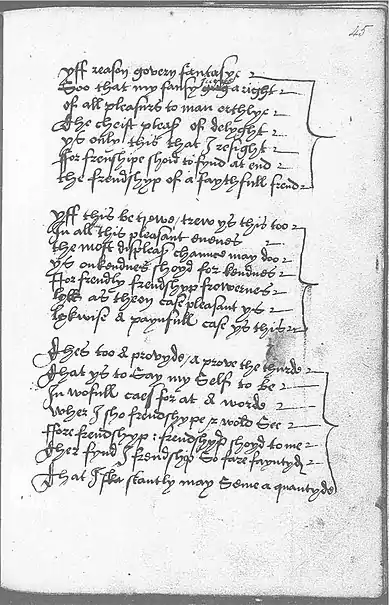 45
yff reason govern fantasye
Soo that my fansy Iudge a right
of all pleasurs to man erthlye
The cheiff pleas of delyght
ys only this that I resight
ffor frenshipe shoid to fynd at end
the frendshyp of a faythfull frend
yff this be trewe / trew ys this too
In all this pleasant evenes
the most displeas chaunce may doo
ys onkendnes shoyd for kendnes
ffor frendly frendshyp frowernes
lyk as theon case pleasant ys
lykwise a paynfull case ys this
Thes too a provyde / a prove the thurde
That ys to Say my Self to be
In wofull caes for at a worde
Wher I sho frendshype & wold See
ffore frendshyp : frendshyp shoyd to me
Ther fynd I frendshyp So fare fayntyd
That I ska skantly may Seme a quantyde